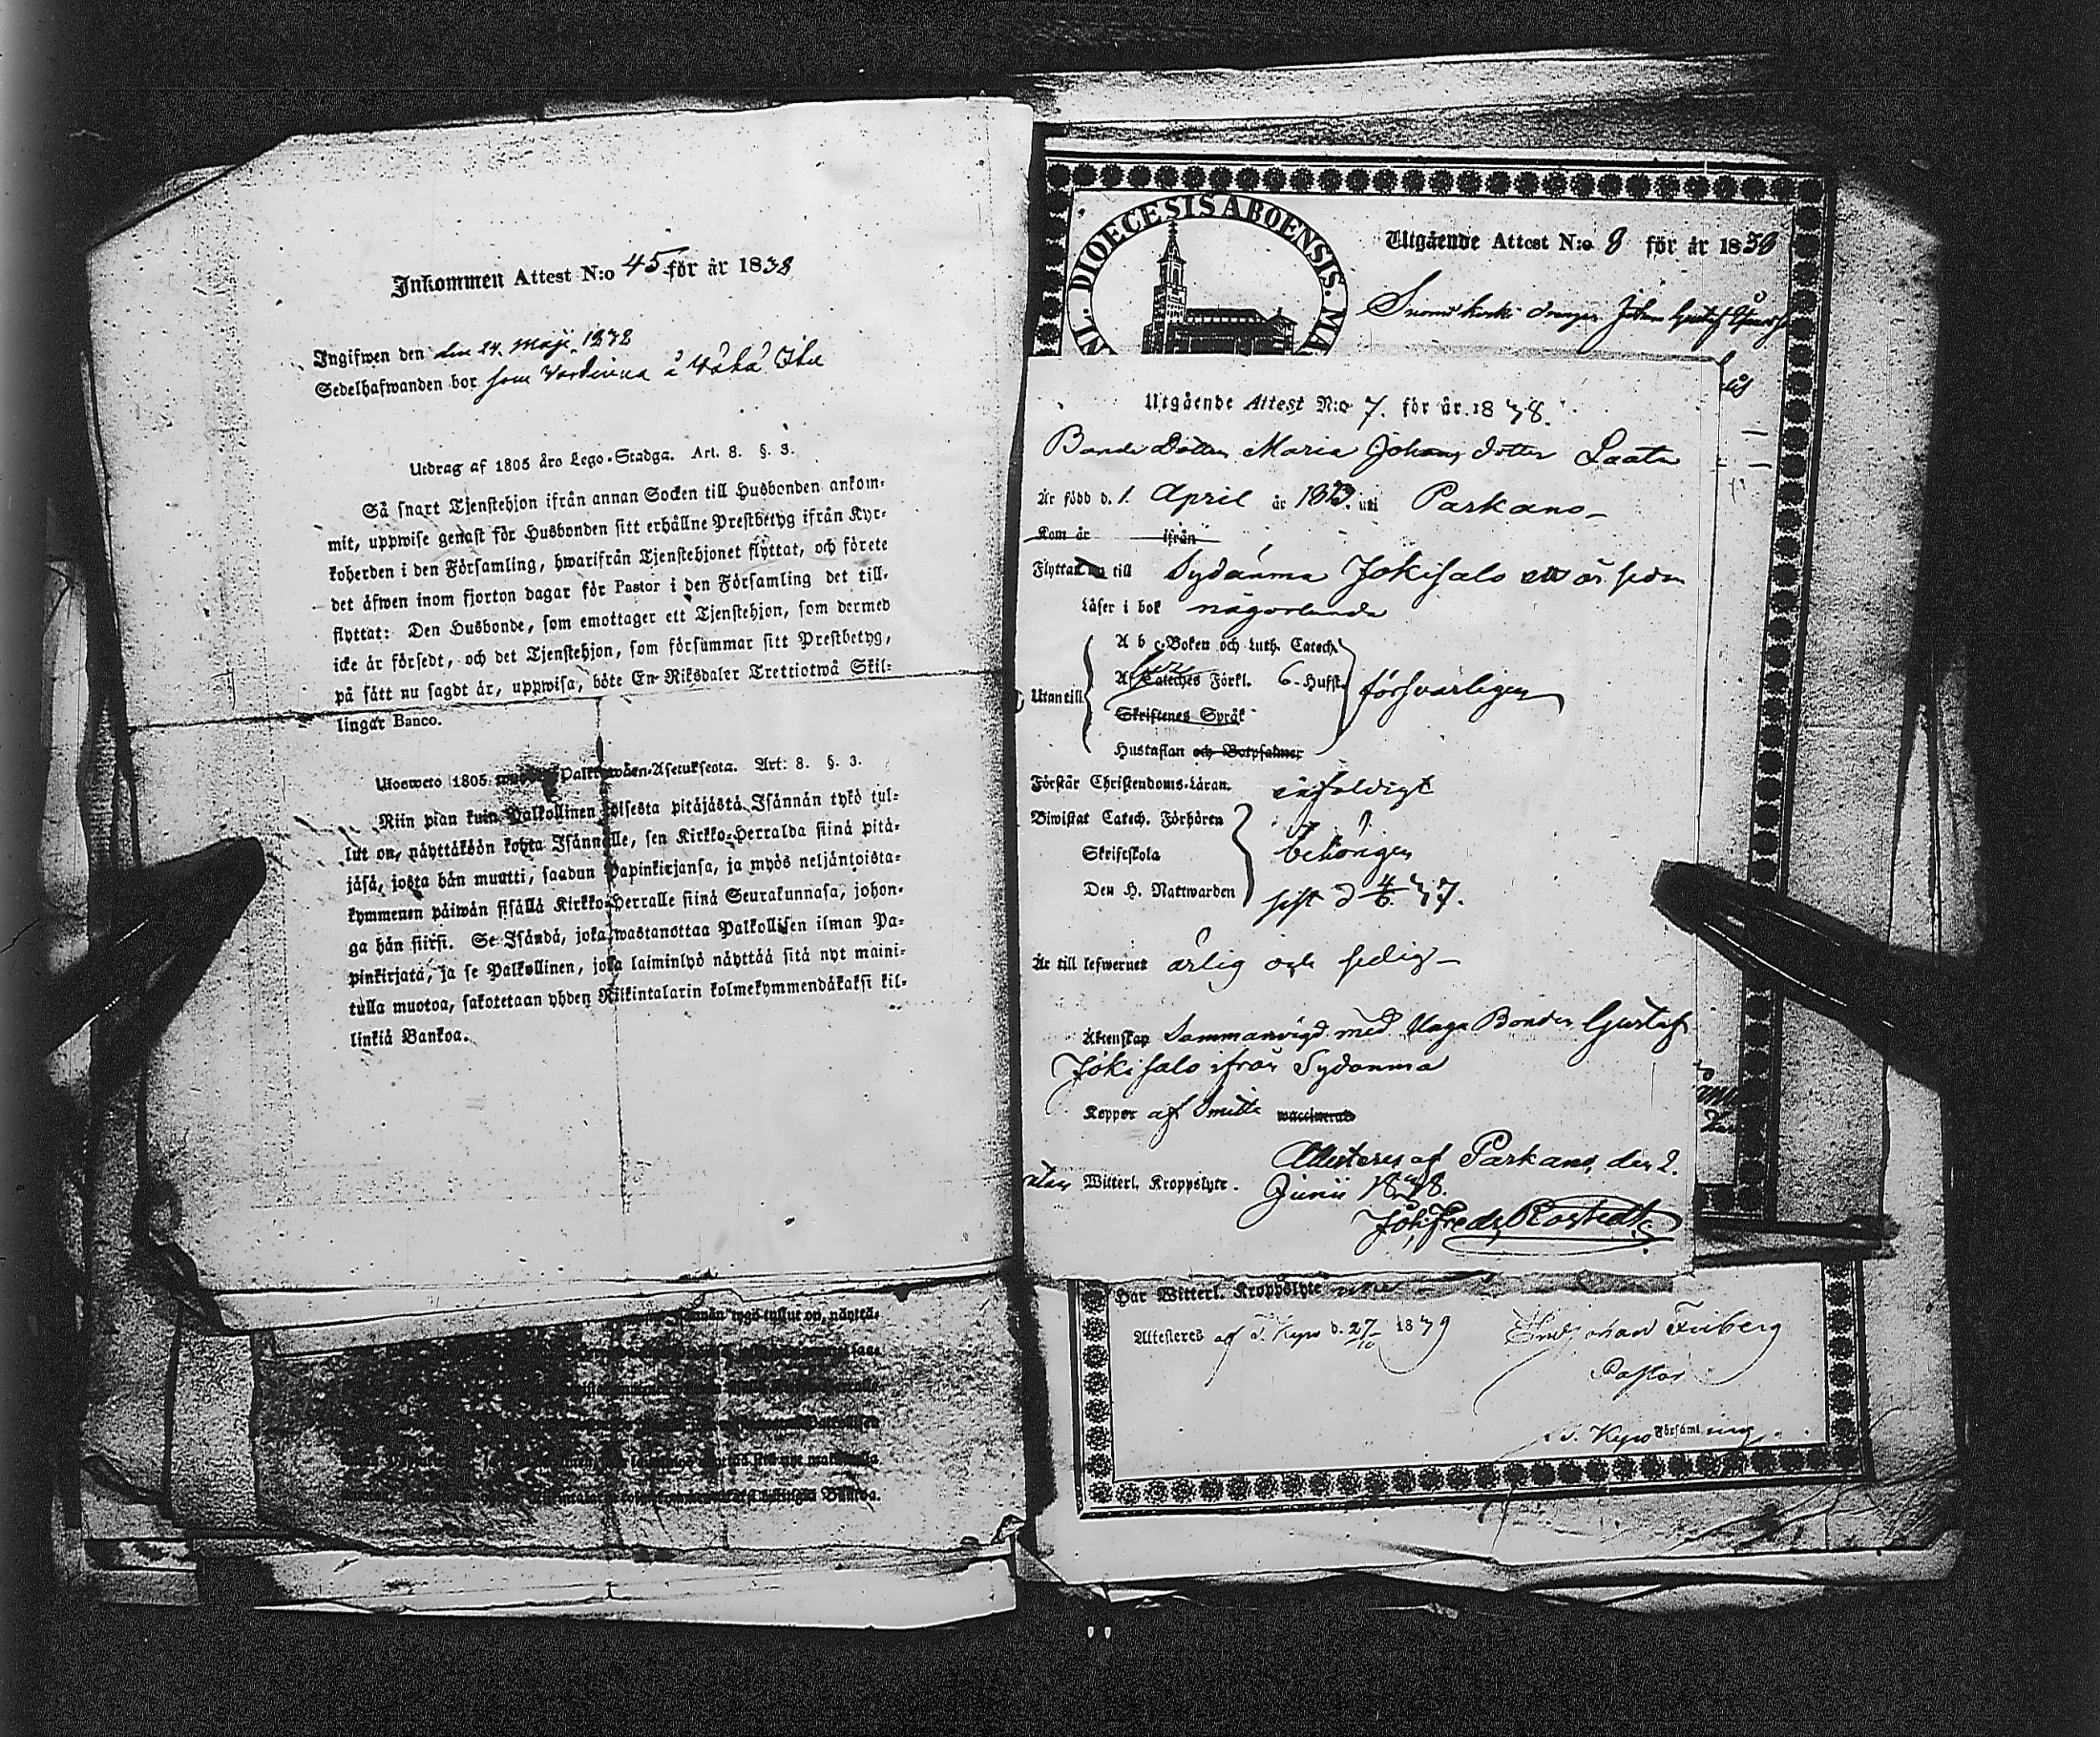 Inkommen Attest N:o 45 för år 1838
Ingifwen den den 24. Maji 1838
Sedelhafwanden bor som Värdinna å
Utdrag af 1805 års Lego-Stadga. Art. 8. §. 3.
Så snart Tjenstehjon ifrån annan Socken till Husbonden ankom-
mit, uppwise genast för Husbonden sitt erhållne Prestbetyg ifrån Kyr-
koherden i den Församling, hwarifrån Tjenstehjonet flyttat, och förete
det äfwen inom fjorton dagar för Pastor i den Församling det till-
flyttat: Den Husbonde, som emottager ett Tjenstehjon, som dermed
icke är försedt, och det Tjenstehjon, som försummar sitt Prestbetyg,
på sätt nu sagdt är, uppwisa, böte En Riksdaler Trettiotwå Skil-
lingar Banco.
Ulosweto 1805 Palkkawäen-Asetuksesta. Art: 8. §. 3.
Niin pian kuin Palkollinen toisesta pitäjästä Isännän tykö tul-
lut on, näyttäköön kohta Isännälle, sen Kirkko-Herralda siinä pitä-
jäsä, josta hän muutti, saadun Papinkirjansa, ja myös neljäntoista-
kymmenen päiwän sisällä Kirkko-Herralle siinä Seurakunnasa, johon-
ga hän siirsi. Se Isändä, joka wastanottaa Palkollisen ilman Pa-
pinkirjatá, ja se Palkollinen, joka laiminlyö näyttää sitä nyt maini-
tulla muotoa, sakotetaan yhden Riikintalarin kolmekymmendäkaksi kil-
linkiä Bankoa.
Isännän tygö tullut on, näyttä-
DIOECESIS ABOENSIS.
Utgående Attest N:o 8 för år 1838
drängen Johan Gustaf
Utgående Attest N:o 7. för år 1838.
Bonde Dottern Maria Johans dotter Laato
Är född d. 1. April år uti Parkano
Kom år ifrån
Flyttar till Sydänma Jokisalo ett år sedan
Läser i bok någorlunda
Utantill
A b c-Boken och Luth. Catech.
Af Catechis Förkl. 6. Hufst.
försvarligen
Skriftenes Språk
Hustaflan och Botpsalmer
Förstår Christendoms-Läran. enfaldigt
Biwistat Catech. Förhören
Skriftskola
behörigen
Den H. Nattwarden sist d
Är till lefwernet ärlig och sedig
Äktenskap Sammanvigd med Unga Bonden Gustaf
Jokisalo ifrån Sydänma
Koppor af Smitta waccinerad
Attesteras af Parkano den 2.
utan Witterl. Kroppslyte. Junii 1838.
Joh. Fredr. Rostedt
Har Witterl. Kroppslyte
Attesteres af I. Kyro d. 27/10 1839
Johan Friberg
Pastor
I. Kyro Församling